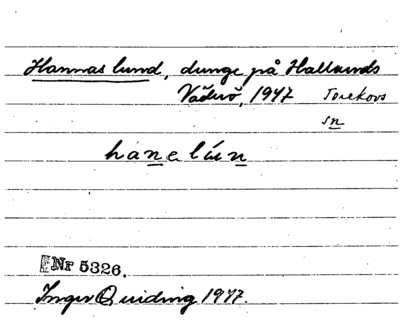 Hannas lund, dunge på Hallands
Väderö, 1947 Torekovs
sn
hanelún
Nr 5326.
Inger Quiding 1947.